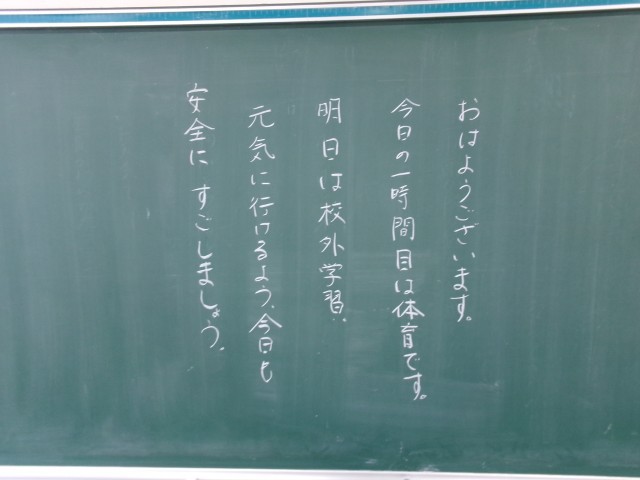 おはようございます。
今日の一時間目は体育です。
明日は校外学習。
元気に行けるよう、今日も
安全に すごしましょう。